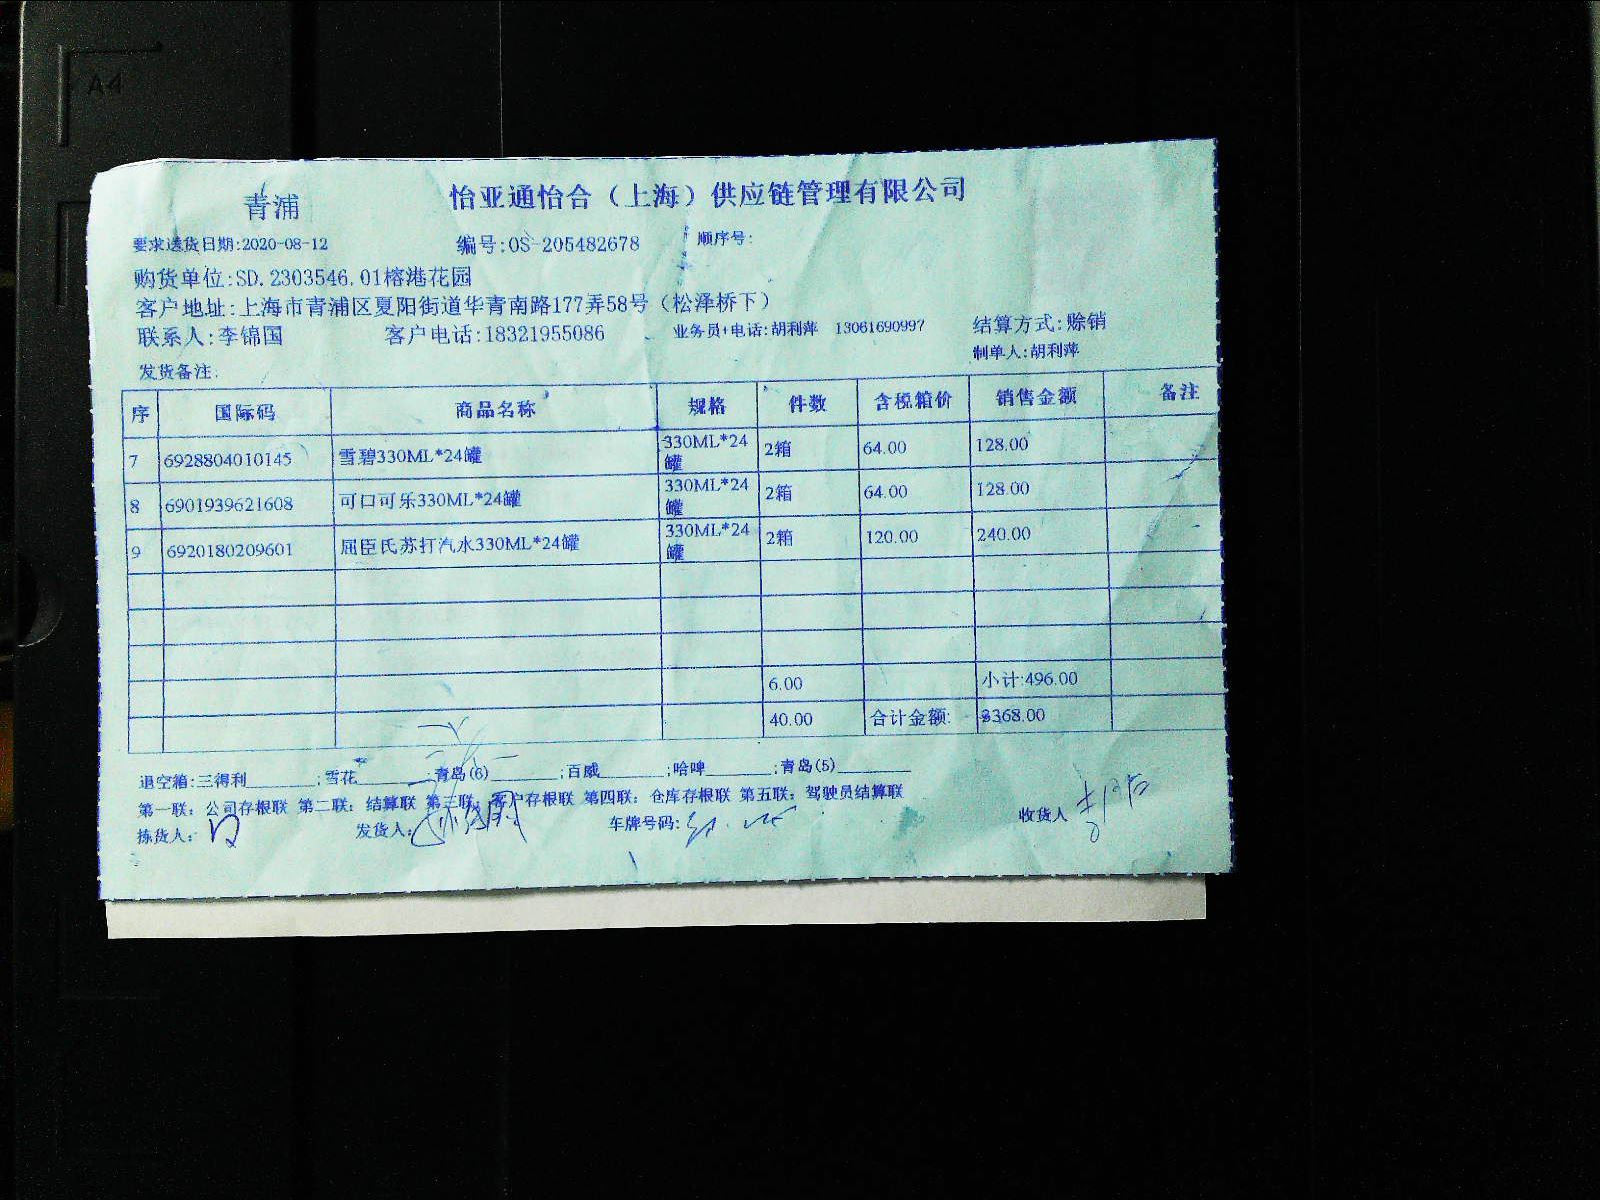 A4
青浦 怡亚通怡合（上海）供应链管理有限公司
要求送货日期:2020-08-12 编号:OS-205482678 顺序号:
购货单位:SD.2303546.01榕港花园
客户地址:上海市青浦区夏阳街道华青南路177弄58号（松泽桥下）
联系人:李锦国 客户电话:18321955086 业务员+电话:胡利萍 13061690997 结算方式:赊销
制单人:胡利萍
发货备注:
序 国际码 商品名称 规格 件数 含税箱价 销售金额 备注
7 6928804010145 雪碧330ML*24罐 330ML*24罐 2箱 64.00 128.00
8 6901939621608 可口可乐330ML*24罐 330ML*24罐 2箱 64.00 128.00
9 6920180209601 屈臣氏苏打汽水330ML*24罐 330ML*24罐 2箱 120.00 240.00
6.00 小计:496.00
40.00 合计金额: 3368.00
退空箱:三得利______;雪花______;青岛(6)______;百威______;哈啤______;青岛(5)______
第一联：公司存根联 第二联：结算联 第三联：客户存根联 第四联：仓库存根联 第五联：驾驶员结算联
拣货人: 发货人: 车牌号码: 收货人